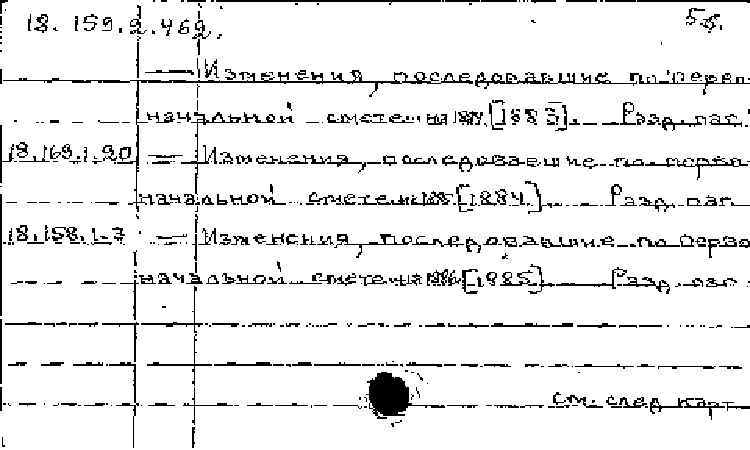 18. 159.2.462. 58.
— Изменения, последовавшие по перво-
начальной смете на 1884 [1883]. — Разд. паг.
18.169.1.20 — Изменения, последовавшие по перво-
начальной смете на 1885 [1884]. — Разд. паг.
18.158.1.7 — Изменения, последовавшие по перво-
начальной смете на 1886 [1885]. — Разд. паг.
см. след карт